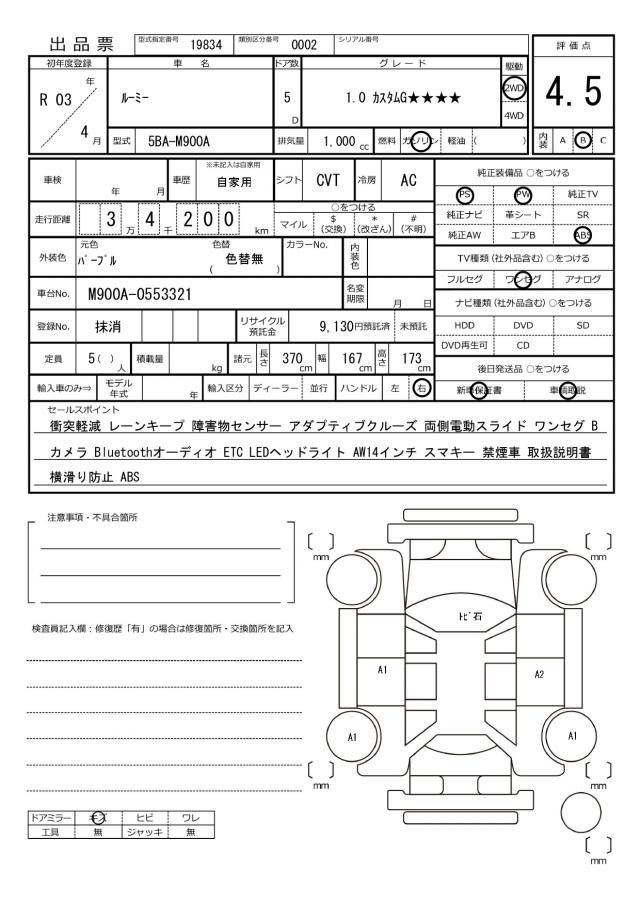 出品票 型式指定番号 19834 類別区分番号 0002 シリアル番号
評価点
4.5
内装 A B C
初年度登録 車名 ドア数 グレード 駆動
R 03 年 4 月 ルーミー 5 D 1.0 カスタムG★★★★ 2WD 4WD
型式 5BA-M900A 排気量 1,000 cc 燃料 ガソリン 軽油 ( )
車検 年 月 車歴 ※未記入は自家用 自家用 シフト CVT 冷房 AC
走行距離 3 万 4 千 2 0 0 km ○をつける
マイル $(交換) *(改ざん) #(不明)
外装色 元色 パープル 色替 ( 色替無 ) カラーNo. 内装色
車台No. M900A-0553321 名変期限 月 日
登録No. 抹消 リサイクル預託金 9,130円預託済 未預託
定員 5 ( ) 人 積載量 kg 諸元 長さ 370 cm 幅 167 cm 高さ 173 cm
輸入車のみ⇒ モデル年式 年 輸入区分 ディーラー 並行 ハンドル 左 右
純正装備品 ○をつける
PS PW 純正TV
純正ナビ 革シート SR
純正AW エアB ABS
TV種類(社外品含む)○をつける
フルセグ ワンセグ アナログ
ナビ種類(社外品含む)○をつける
HDD DVD SD
DVD再生可 CD
後日発送品 ○をつける
新車保証書 車輌取説
セールスポイント
衝突軽減 レーンキープ 障害物センサー アダプティブクルーズ 両側電動スライド ワンセグ B
カメラ Bluetoothオーディオ ETC LEDヘッドライト AW14インチ スマキー 禁煙車 取扱説明書
横滑り防止 ABS
注意事項・不具合箇所
検査員記入欄：修復歴「有」の場合は修復箇所・交換箇所を記入
ドアミラー キズ ヒビ ワレ
工具 無 ジャッキ 無
〔 〕mm 〔 〕mm
トビ石
A1 A2
A1 A1
〔 〕mm 〔 〕mm
〔 〕mm